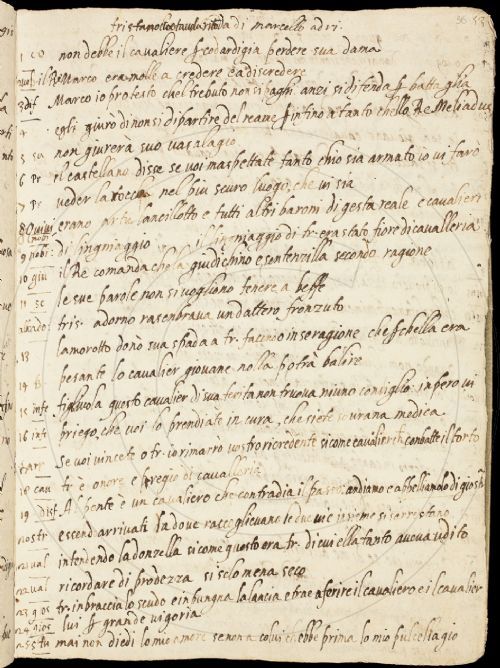 tristano o tavola ritonda di marcello adri
36 53
1 co non debbe il cavaliere p codardigia perdere sua dama
il Re Marco era molle a credere e a discredere
3 dif Marco io protesto che'l trebuto non si paghi anzi si difenda p battaglia
4 egli giurò di non si dipartire del reame p infino a tanto chello Re Meliadus
non giurera suo vasalagio
5 sa il castellano disse se voi m'aspettate tanto ch'io sia armato io vi farò
6 Pr veder la rocca nel piu scuro luogo, che vi sia
7 Pr erano lancillotto e tutti altri baroni di gesta reale e cavalieri
8 di lingniaggio il lingniaggio di tr. era stato fiore di cavalleria
9 nobi: il Re comanda che la giudichino e sentenzilla secondo ragione
10 giu
11 sc le sue parole non si vogliono tenere a beffe
tris. adorno rasenbrava un dattero fronzuto
13 lamorotto donò sua spada a tr. facendo in se ragione che s'ebella era
14 pesante lo cavalier giovane nolla potrà balire
15 infe figliuola questo cavalier di sua ferita non truova niuno consiglio inpero vi
16 inf priego, che voi lo prendiate in cura, che siete sovrana medica
17 Se voi vincete o tr. io rimarrò vostro ricredente si come cavaliere ch conbatte il torto
18 cau ti è onore e pregio di cavalleria
19 dist Al ponte è un cavaliero che contradia il passo: andiamo e abbellianolo di giostra
20 str essendo arrivati la dove raccoglievano le due vie insieme si arrestano
21 val intendendo la donzella si come questo era tr. di cui ella tanto aveva udito
22 val ricordare di prodezza si selo mena seco
23 gios tr. inbraccia lo scudo e inpungna la lancia e trae a ferire il cavaliero e il cavalier
24 gios lui p grande vigoria
25 mai non diedi lo mio amore se non a colui ch'ebbe prima lo mio pulcellagio